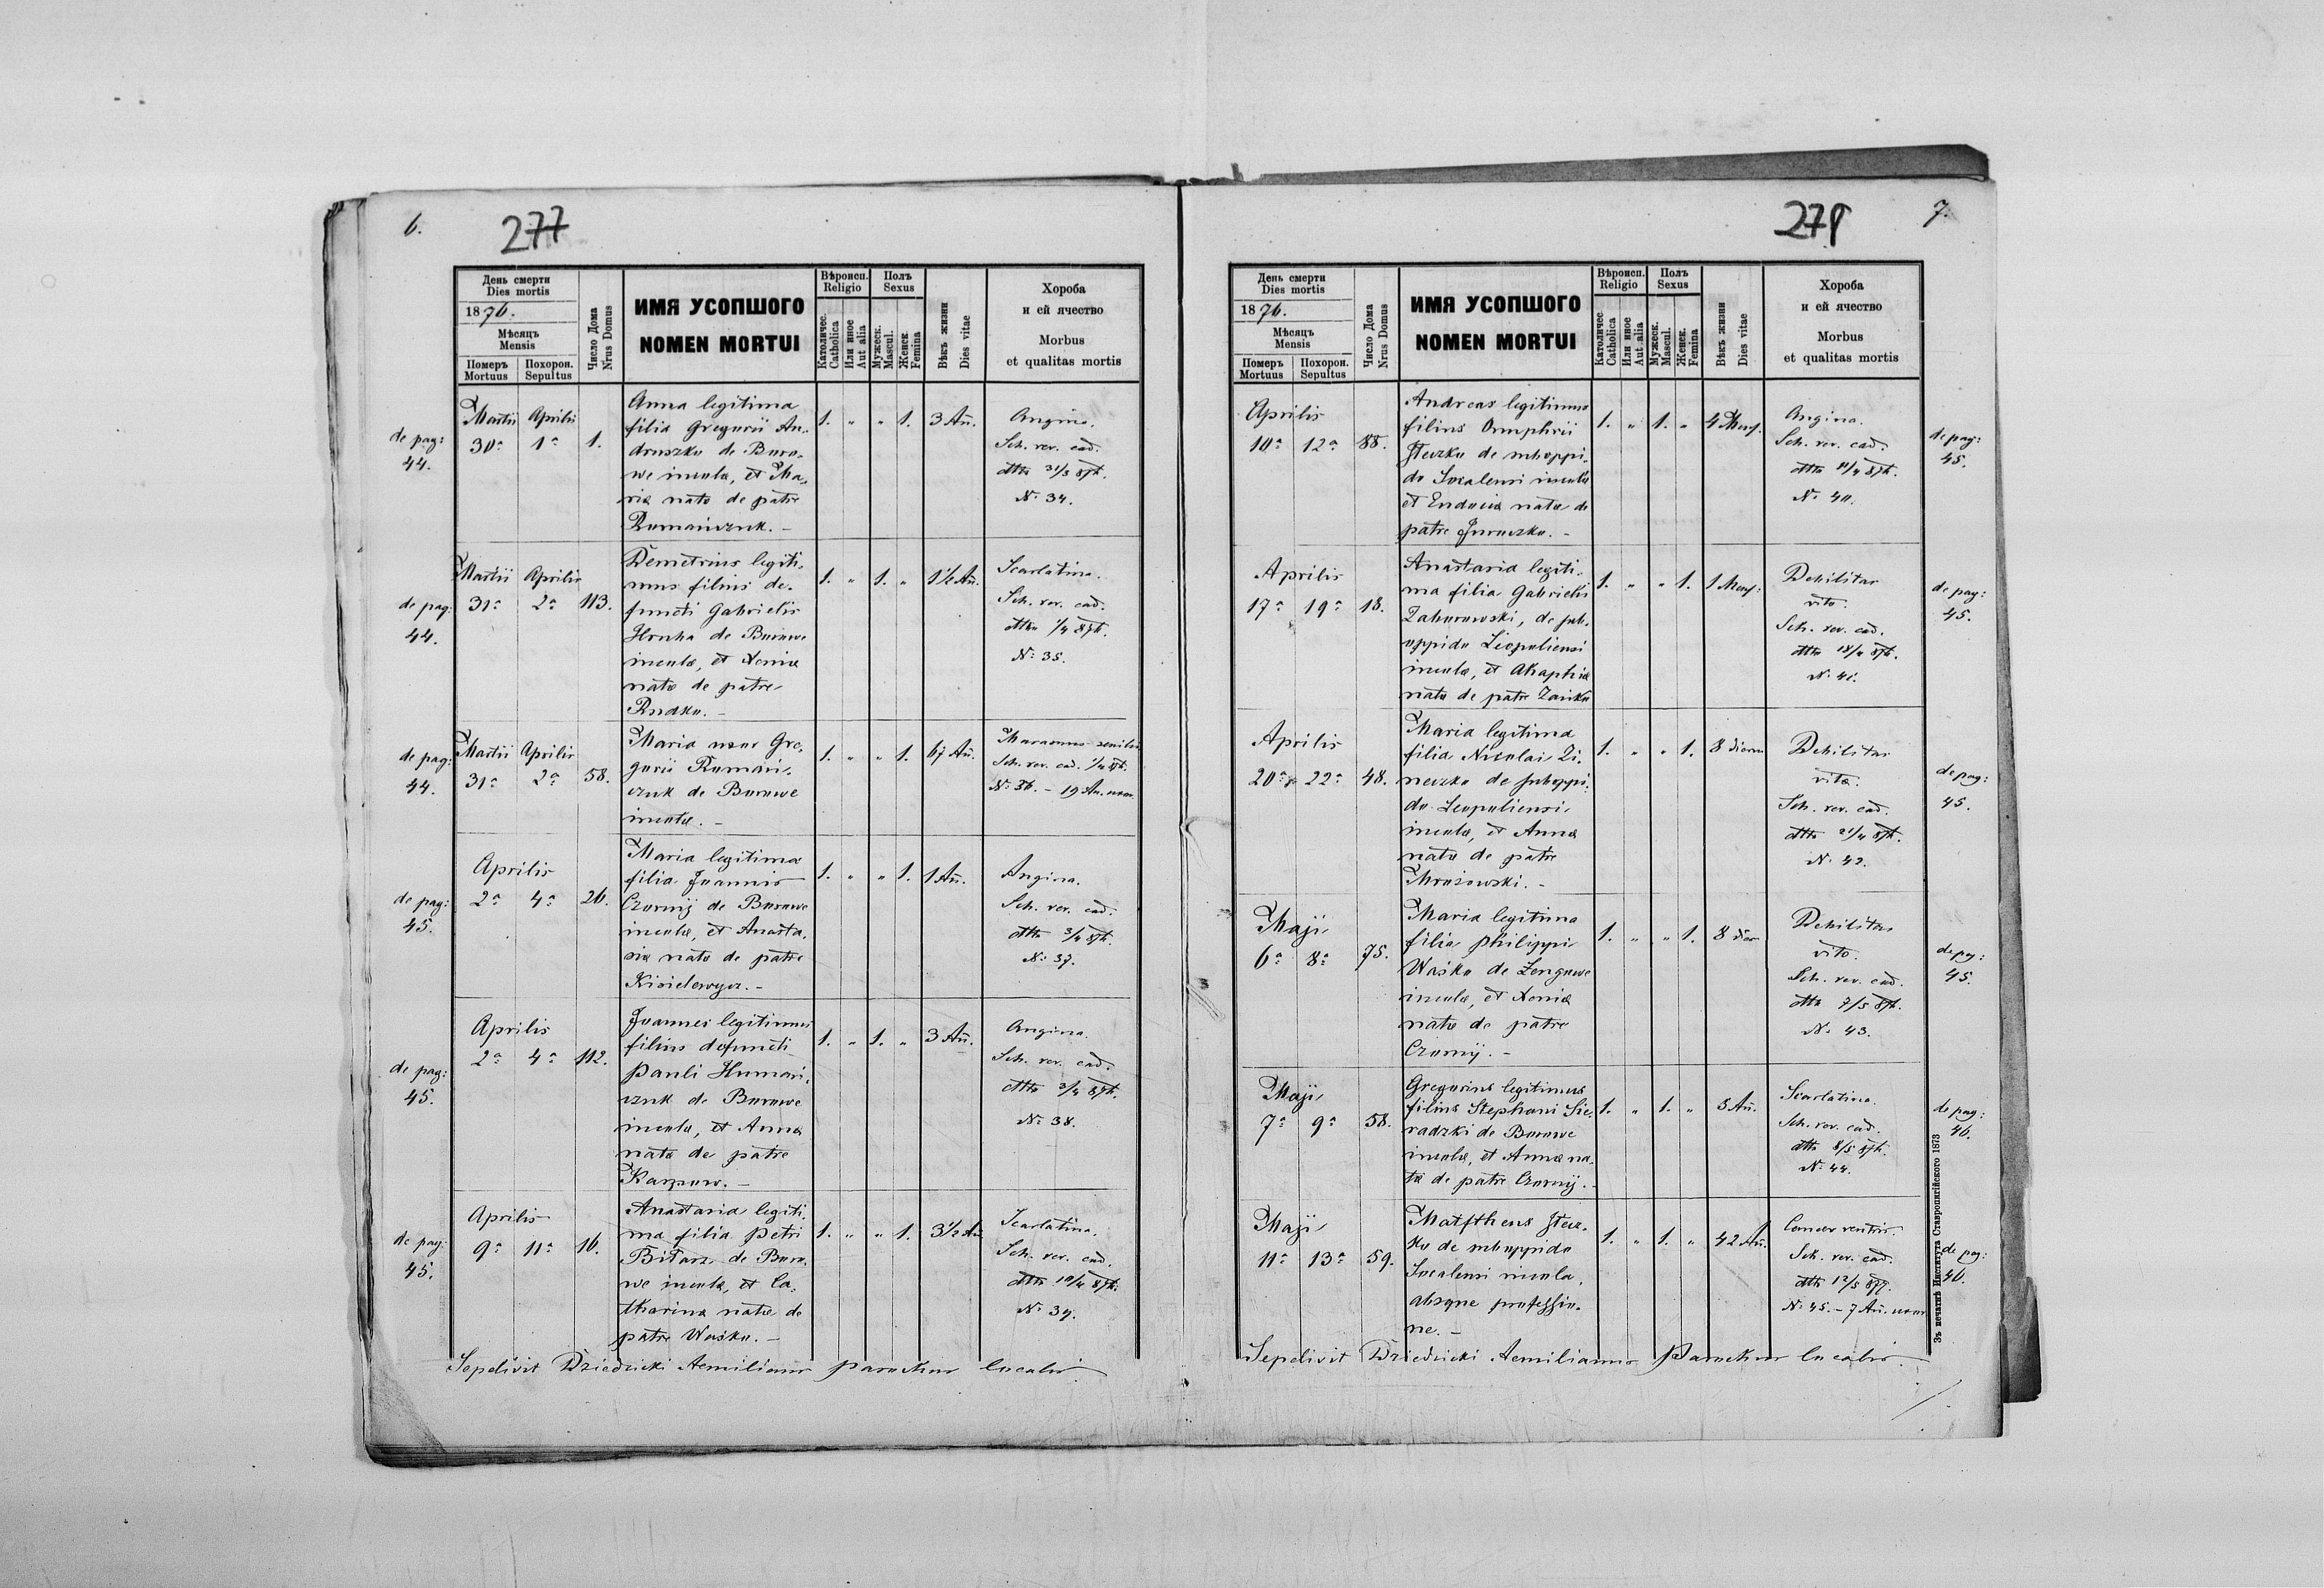 6.
277
День смерти
Dies mortis
1876.
Мѣсяцъ
Mensis
Померъ
Mortuus
Похорон.
Sepultus
Число Дома
Nrus Domus
ИМЯ УСОПШОГО
NOMEN MORTUI
Вѣроисп.
Religio
Католичес.
Catholica
Или иное
Aut alia
Полъ
Sexus
Мужеск.
Mascul.
Женск.
Femina
Вѣкъ жизни
Dies vitae
Хороба
и ей ячество
Morbus
et qualitas mortis
de pag:
44.
Martii Aprilis
30a 1a 1.
Anna legitima
filia Gregorii An-
druszko de Buro-
we incolæ, et Ma-
riæ natæ de patre
Romańczuk. –
1. " " 1. 3 Añ.
Angina.
Sch. rev. cad.
dtto 31/3 876.
No 34.
de pag:
44.
Martii Aprilis
31a 2a 113.
Demetrius legiti-
mus filius de-
functi Gabrielis
Hruha de Burowe
incolæ, et Xeniæ
natæ de patre
Rudko. –
1. " 1. " 1½ Añ.
Scarlatina.
Sch. rev. cad.
dtto 1/4 876.
No 35.
de pag:
44.
Martii Aprilis
31a 2a 58.
Maria uxor Gre-
gorii Romań-
czuk de Burowe
incolæ. –
1. " " 1. 67 Añ.
Marasmus senilis
Sch. rev. cad. 1/4 876.
No 36. – 19 An. uxor.
de pag:
45.
Aprilis
2a 4a 26.
Maria legitima
filia Joannis
Czornij de Burowe
incolæ, et Anasta-
siæ natæ de patre
Kisielewycz. –
1. " " 1. 1 Añ.
Angina.
Sch. rev. cad.
dtto 3/4 876.
No 37.
de pag:
45.
Aprilis
2a 4a 112.
Joannes legitimus
filius defuncti
Pauli Humań-
czuk de Burowe
incolæ, et Annæ
natæ de patre
Karpow. –
1. " 1. " 3 Añ.
Angina.
Sch. rev. cad.
dtto 3/4 876.
No 38.
de pag:
45.
Aprilis
9a 11a 16.
Anastasia legiti-
ma filia Petri
Bitarz de Buro-
we incolæ, et Ca-
tharinæ natæ de
patre Waśko. –
1. " " 1. 3½ Añ.
Scarlatina.
Sch. rev. cad.
dtto 10/4 876.
No 39.
Sepelivit Dziedzicki Aemilianus parochus localis.
7.
День смерти
Dies mortis
1876.
Мѣсяцъ
Mensis
Померъ
Mortuus
Похорон.
Sepultus
Число Дома
Nrus Domus
ИМЯ УСОПШОГО
NOMEN MORTUI
Вѣроисп.
Religio
Католичес.
Catholica
Или иное
Aut alia
Полъ
Sexus
Мужеск.
Mascul.
Женск.
Femina
Вѣкъ жизни
Dies vitae
Хороба
и ей ячество
Morbus
et qualitas mortis
Aprilis
10a 12a 88.
Andreas legitimus
filius Onuphrii
Steczko de suboppi-
do Socalensi incolæ
et Eudociæ natæ de
patre Juruszko. –
1. " 1. " 4 Mens.
Angina.
Sch. rev. cad.
dtto 11/4 876.
No 40.
de pag:
45.
Aprilis
17a 19a 18.
Anastasia legiti-
ma filia Gabrielis
Zaborowski, de sub-
oppido Leopoliensi
incolæ, et Ahaphiæ
natæ de patre Zańko
1. " " 1. 1 Mens:
Debilitas
vitæ.
Sch. rev. cad.
dtto 18/4 876.
No 41.
de pag:
45.
Aprilis
20a 22a 48.
Maria legitima
filia Nicolai Zi-
neczko de suboppi-
do Leopoliensi
incolæ, et Annæ
natæ de patre
Mrozowski. –
1. " " 1. 8 dierum
Debilitas
vitæ.
Sch. rev. cad.
dtto 21/4 876.
No 42.
de pag:
45.
Maji
6a 8a 75.
Maria legitima
filia Philippi
Waśko de Zengowe
incolæ, et Xeniæ
natæ de patre
Czornij. –
1. " " 1. 8 dier.
Debilitas
vitæ.
Sch. rev. cad.
dtto 7/5 876.
No 43.
de pag:
45.
Maji
7a 9a 58.
Gregorius legitimus
filius Stephani Sie-
radzki de Burowe
incolæ, et Annæ na-
tæ de patre Czornij. –
1. " 1. " 3 Añ.
Scarlatina.
Sch. rev. cad.
dtto 8/5 876.
No 44.
de pag:
46.
Maji
11a 13a 59.
Matftheus Stecz-
ko de suboppido
Socalensi incola,
absque professio-
ne. –
1. " 1. " 42 Añ.
Cancer ventris.
Sch. rev. cad.
dtto 12/5 877.
No 45. – 7 Añ. uxor
de pag:
46.
Sepelivit Dziedzicki Aemilianus Parochus localis.
Зъ печатнѣ Института Ставропигійского 1873